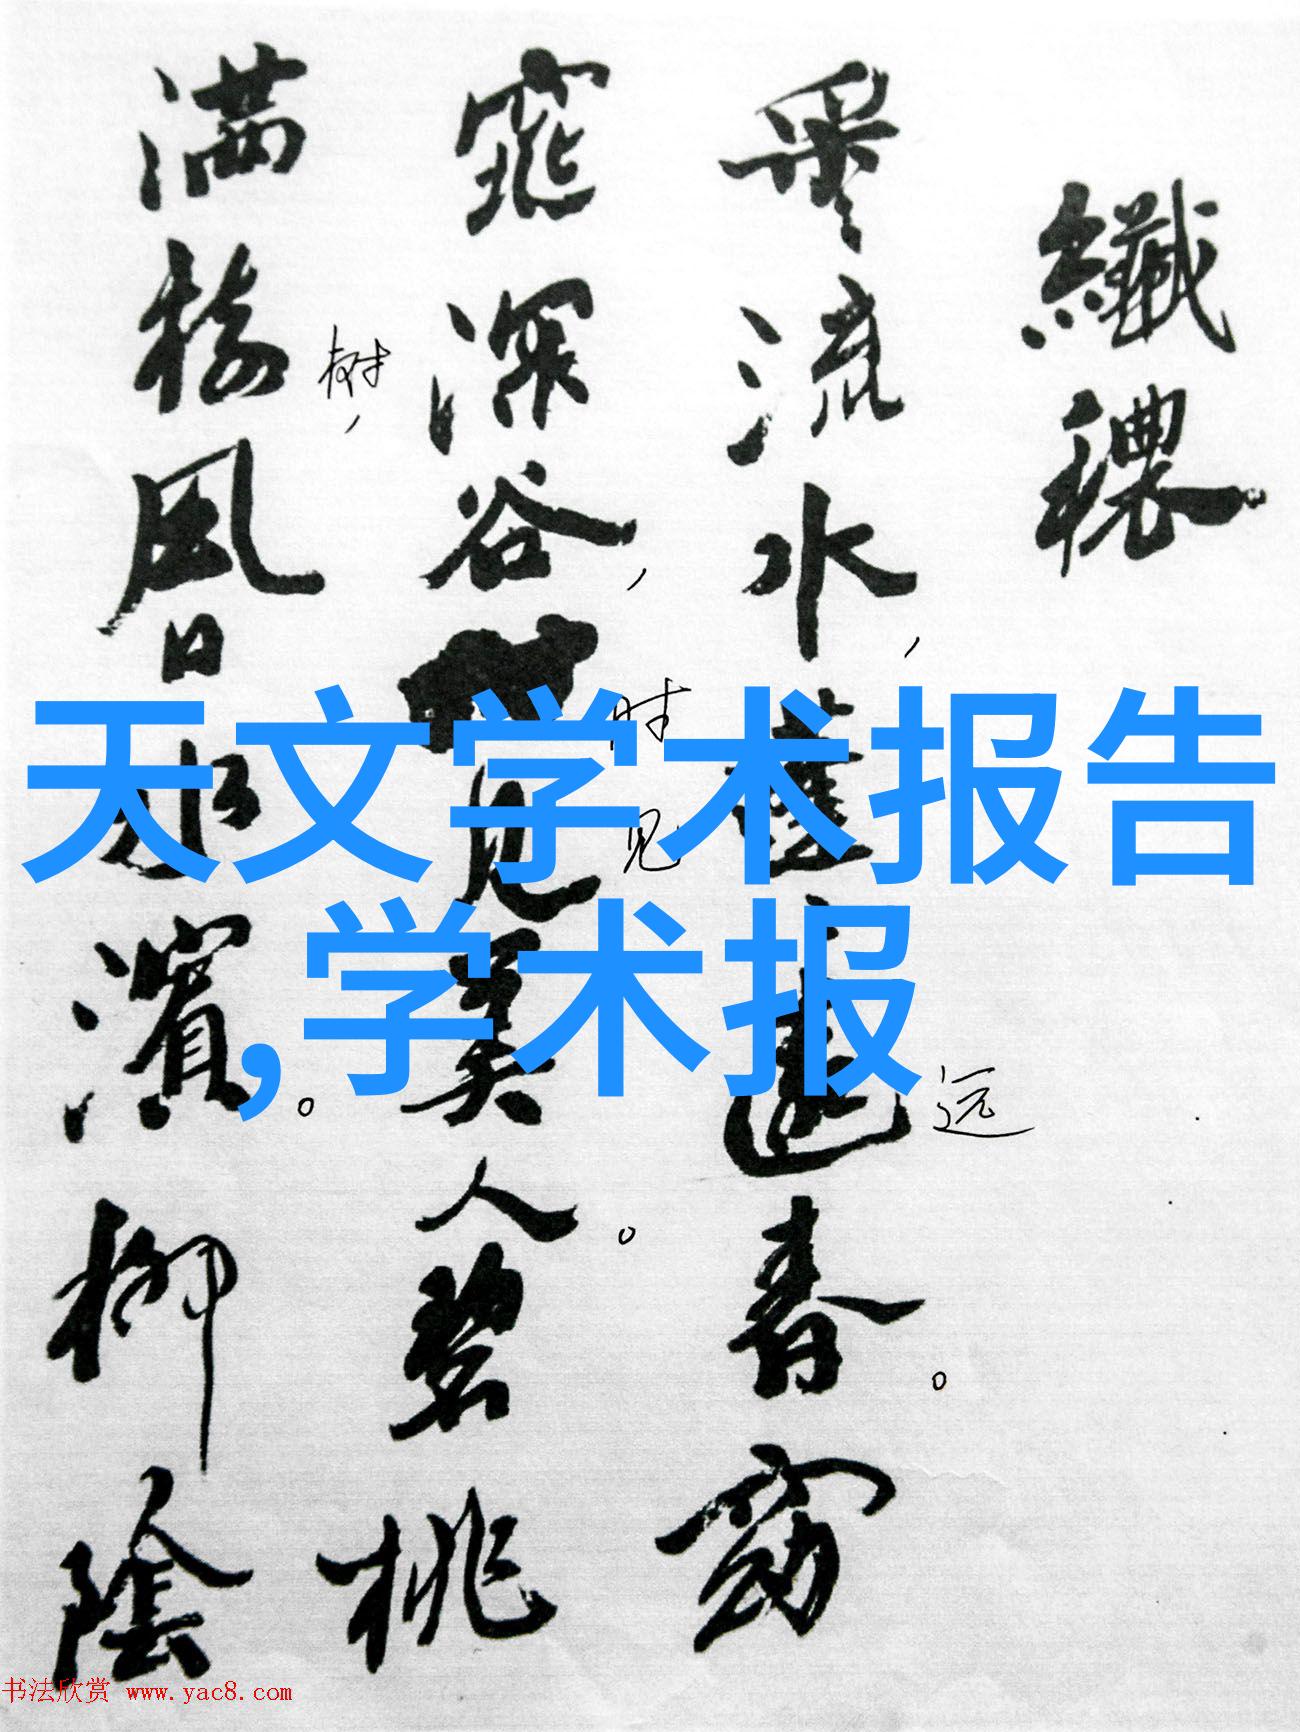 纖穠
采流水，蓬蓬遠春。窈
窕深谷，時見美人。碧桃
满樹風日水濱。柳陰
树，
时
见
远
天文学术报告
，学术报
书法欣赏 www.yac8.com